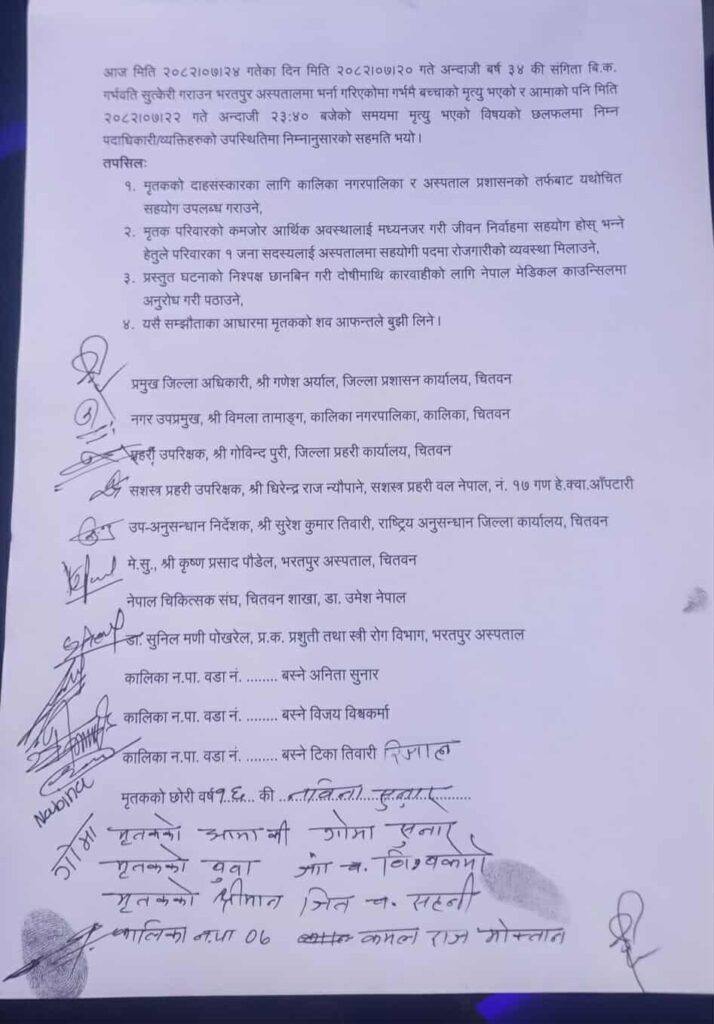 आज मिति २०८२।०७।२४ गतेका दिन मिति २०८२।०७।२० गते अन्दाजी बर्ष ३४ की संगिता बि.क.
गर्भवति सुत्केरी गराउन भरतपुर अस्पतालमा भर्ना गरिएकोमा गर्भमै बच्चाको मृत्यु भएको र आमाको पनि मिति
२०८२।०७।२२ गते अन्दाजी २३:४० बजेको समयमा मृत्यु भएको विषयको छलफलमा निम्न
पदाधिकारी/व्यक्तिहरुको उपस्थितिमा निम्नानुसारको सहमति भयो ।
तपसिलः
१. मृतकको दाहसंस्कारका लागि कालिका नगरपालिका र अस्पताल प्रशासनको तर्फबाट यथोचित
सहयोग उपलब्ध गराउने,
२. मृतक परिवारको कमजोर आर्थिक अवस्थालाई मध्यनजर गरी जीवन निर्वाहमा सहयोग होस् भन्ने
हेतुले परिवारका १ जना सदस्यलाई अस्पतालमा सहयोगी पदमा रोजगारीको व्यवस्था मिलाउने,
३. प्रस्तुत घटनाको निश्पक्ष छानबिन गरी दोषीमाथि कारवाहीको लागि नेपाल मेडिकल काउन्सिलमा
अनुरोध गरी पठाउने,
४. यसै सम्झौताका आधारमा मृतकको शव आफन्तले बुझी लिने ।
प्रमुख जिल्ला अधिकारी, श्री गणेश अर्याल, जिल्ला प्रशासन कार्यालय, चितवन
नगर उपप्रमुख, श्री विमला तामाङ्ग, कालिका नगरपालिका, कालिका, चितवन
प्रहरी उपरिक्षक, श्री गोविन्द पुरी, जिल्ला प्रहरी कार्यालय, चितवन
सशस्त्र प्रहरी उपरिक्षक, श्री धिरेन्द्र राज न्यौपाने, सशस्त्र प्रहरी वल नेपाल, नं. १७ गण हे.क्वा.आँपटारी
उप-अनुसन्धान निर्देशक, श्री सुरेश कुमार तिवारी, राष्ट्रिय अनुसन्धान जिल्ला कार्यालय, चितवन
मे.सु., श्री कृष्ण प्रसाद पौडेल, भरतपुर अस्पताल, चितवन
नेपाल चिकित्सक संघ, चितवन शाखा, डा. उमेश नेपाल
डा. सुनिल मणी पोखरेल, प्र.क. प्रशुती तथा स्त्री रोग विभाग, भरतपुर अस्पताल
कालिका न.पा. वडा नं. ........ बस्ने अनिता सुनार
कालिका न.पा. वडा नं. ........ बस्ने विजय विश्वकर्मा
कालिका न.पा. वडा नं. ........ बस्ने टिका तिवारी रिजाल
मृतकको छोरी वर्ष १६ की नविना सुनार
Nabina
गोमा मृतकको आमा श्री गोमा सुनार
मृतकको बुवा जंग ब. विश्वकर्मा
मृतकको श्रीमान जित ब. सहनी
कालिका न.पा 06 कमल राज मोक्तान